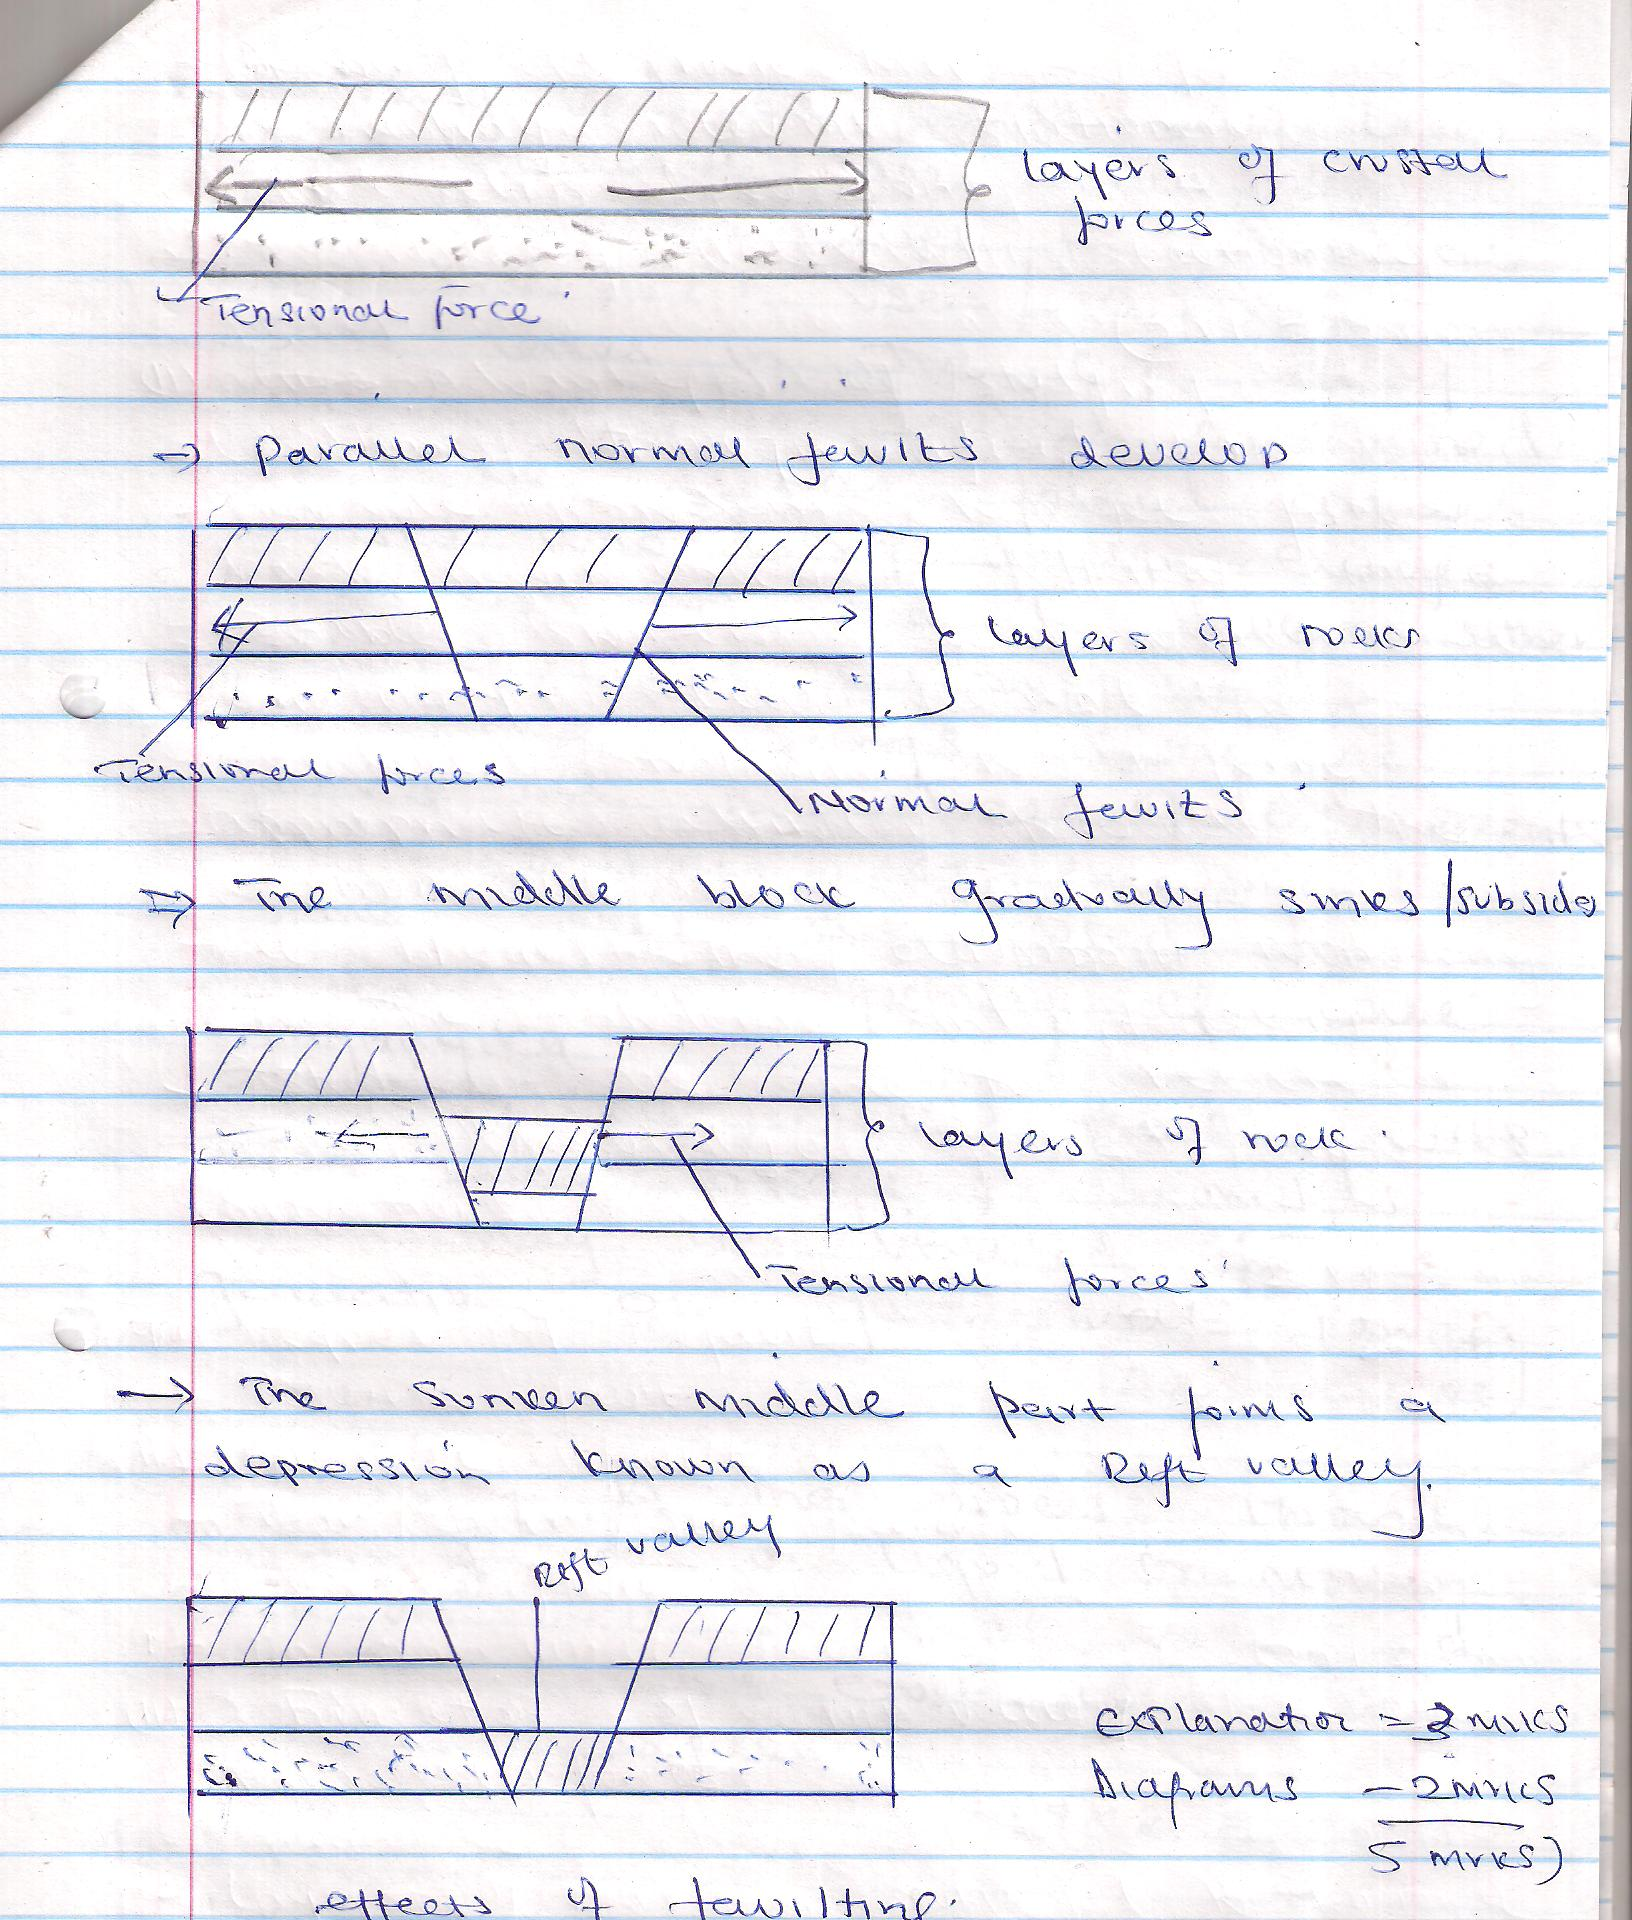 Layers of crustal
forces
Tensional force
→ Parallel normal faults develop
Layers of rocks
Tensional forces
Normal faults
⇒ The middle block gradually sinks/subsides
Layers of rock.
Tensional forces
→ The sunken middle part forms a
depression known as a Rift valley.
Rift valley
Explanation = 3 mrks
Diagrams - 2 mrks
5 mrks)
effects of faulting.